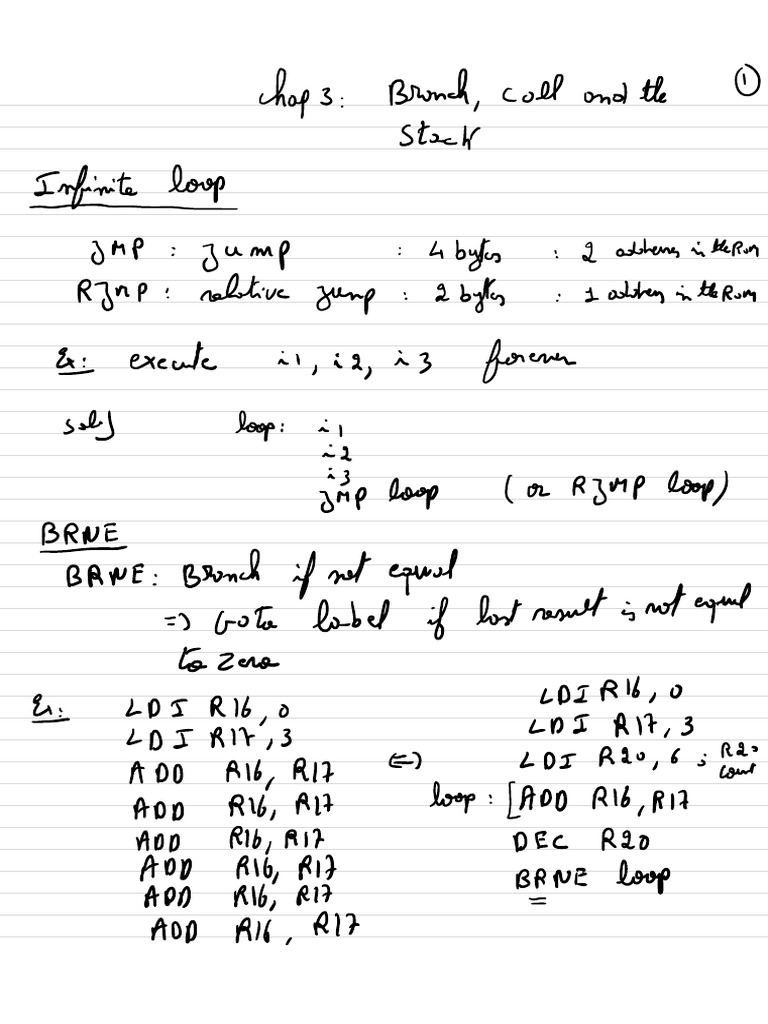 ①
Chap 3: Branch, call and the
Stack
Infinite loop
JMP : jump : 4 bytes : 2 address in the Rom
RJMP : relative jump : 2 bytes : 1 address in the Rom
Ex: execute i1, i2, i3 forever
sol) loop: i1
i2
i3
JMP loop (or RJMP loop)
BRNE
BRNE: Branch if not equal
=> Goto label if last result is not equal
to zero
Ex: LDI R16, 0
LDI R17, 3
ADD R16, R17
ADD R16, R17
ADD R16, R17
ADD R16, R17
ADD R16, R17
ADD R16, R17
<=>
LDI R16, 0
LDI R17, 3
LDI R20, 6 ; R20
count
loop: [ADD R16, R17
DEC R20
BRNE loop